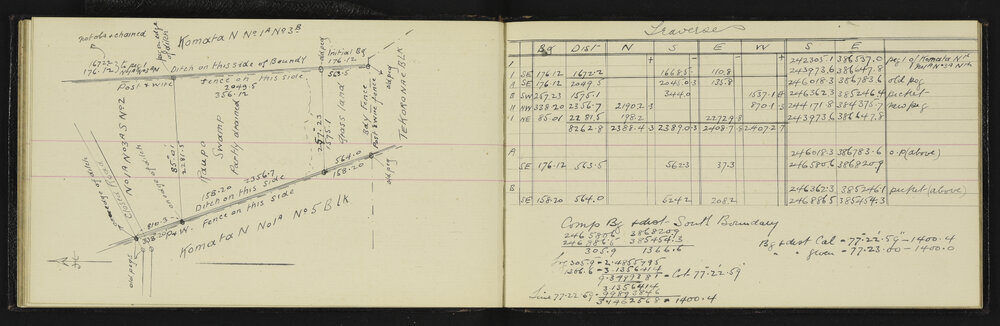 not obs & chained
Komata N No 1A No 3B
old peg
Initial Bg
176.12
563.5
1672.2
176.12
to peg 1
No 1A No 3A N
Post & wire
Ditch on this side of Boundy
fence on this side
2049.5
356.12
Raupo
Swamp
Partly drained
257.23
1575.1
Grass land
Bdy Fence
Post & wire fence
TEKORONEO BLK
old peg
No 1A No 3A S No 2
85.01
2281.5
on edge of ditch
2356.7
158.20
Ditch on this side
564.0
158.20
810.3
338.20
P & W. Fence on this side
Komata N No 1A No 5 Blk
old peg
Traverse
Bg Dist N S E W S E
1 242305.1 386537.0 peg 1 of Komata N No 1A No 3A N
1 SE 176.12 1672.2 1668.5 110.8 243973.6 386647.8
SE 176.12 2049.5 2045.0 135.8 246018.3 386783.6 old peg
SW 257.23 1575.1 344.0 1537.1 246362.3 385246.4 picket
11 NW 338.20 2356.7 2190.2 870.1 244171.8 384375.7 new peg
1 NE 85.01 2281.5 198.2 2272.9 243973.6 386647.8
8262.8 2388.4 2389.0 2408.7 2407.2
A 246018.3 386783.6 o.p (above)
SE 176.12 563.5 562.3 37.3 246580.6 386820.9
B 246362.3 385246.1 picket (above)
SE 158.20 564.0 524.2 208.2 246886.5 385454.3
Comp Bg & dist - South Boundary
246580.6 386820.9
246886.5 385454.3
305.9 1366.6
Bg & dist Cal = 77°.22'.59" - 1400.4
" " given = 77.23.00 - 1400.0
log 305.9 = 2.4855795
1366.6 = 3.1356414
= Cot 77°.22'.59"
3.1356414
Sine 77.22.59 = 9.9893846
= 1400.4